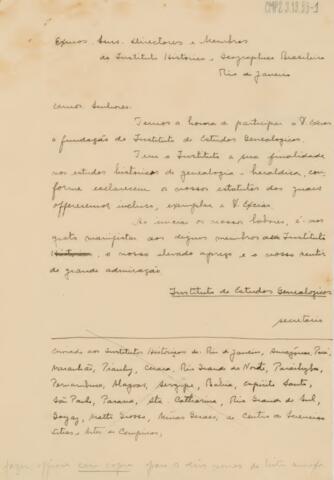 CMP2.3.19.33-1
Exmos. Snrs. Directores e Membros
do Instituto Historico e Geographico Brasileiro
Rio de Janeiro
Senhores.
Temos a honra de participar a V. Excias
a fundação do Instituto de Estudos Genealogicos.
Tem o Instituto a sua finalidade
nos estudos historicos de genealogia e heraldica, con-
forme esclarecem os nossos estatutos dos quaes
offerecemos incluso, exemplar a V. Excias.
Ao iniciar os nossos labores, é-nos
grato manifestar aos dignos membros desse Instituto
Historico, o nosso elevado apreço e o nosso sentir
de grande admiração.
Instituto de Estudos Genealogicos
secretario
aos Institutos Historicos do: Rio de Janeiro, Amazonas, Pará,
Maranhão, Piauhy, Ceará, Rio Grande do Norte, Parahyba,
Pernambuco, Alagoas, Sergipe, Bahia, Espirito Santo,
São Paulo, Paraná, Sta. Catharina, Rio Grande do Sul,
Goyaz, Matto Grosso, Minas Geraes, ao Centro de Sciencias
Letras e Artes de Campinas,
fazer officios com copia para o